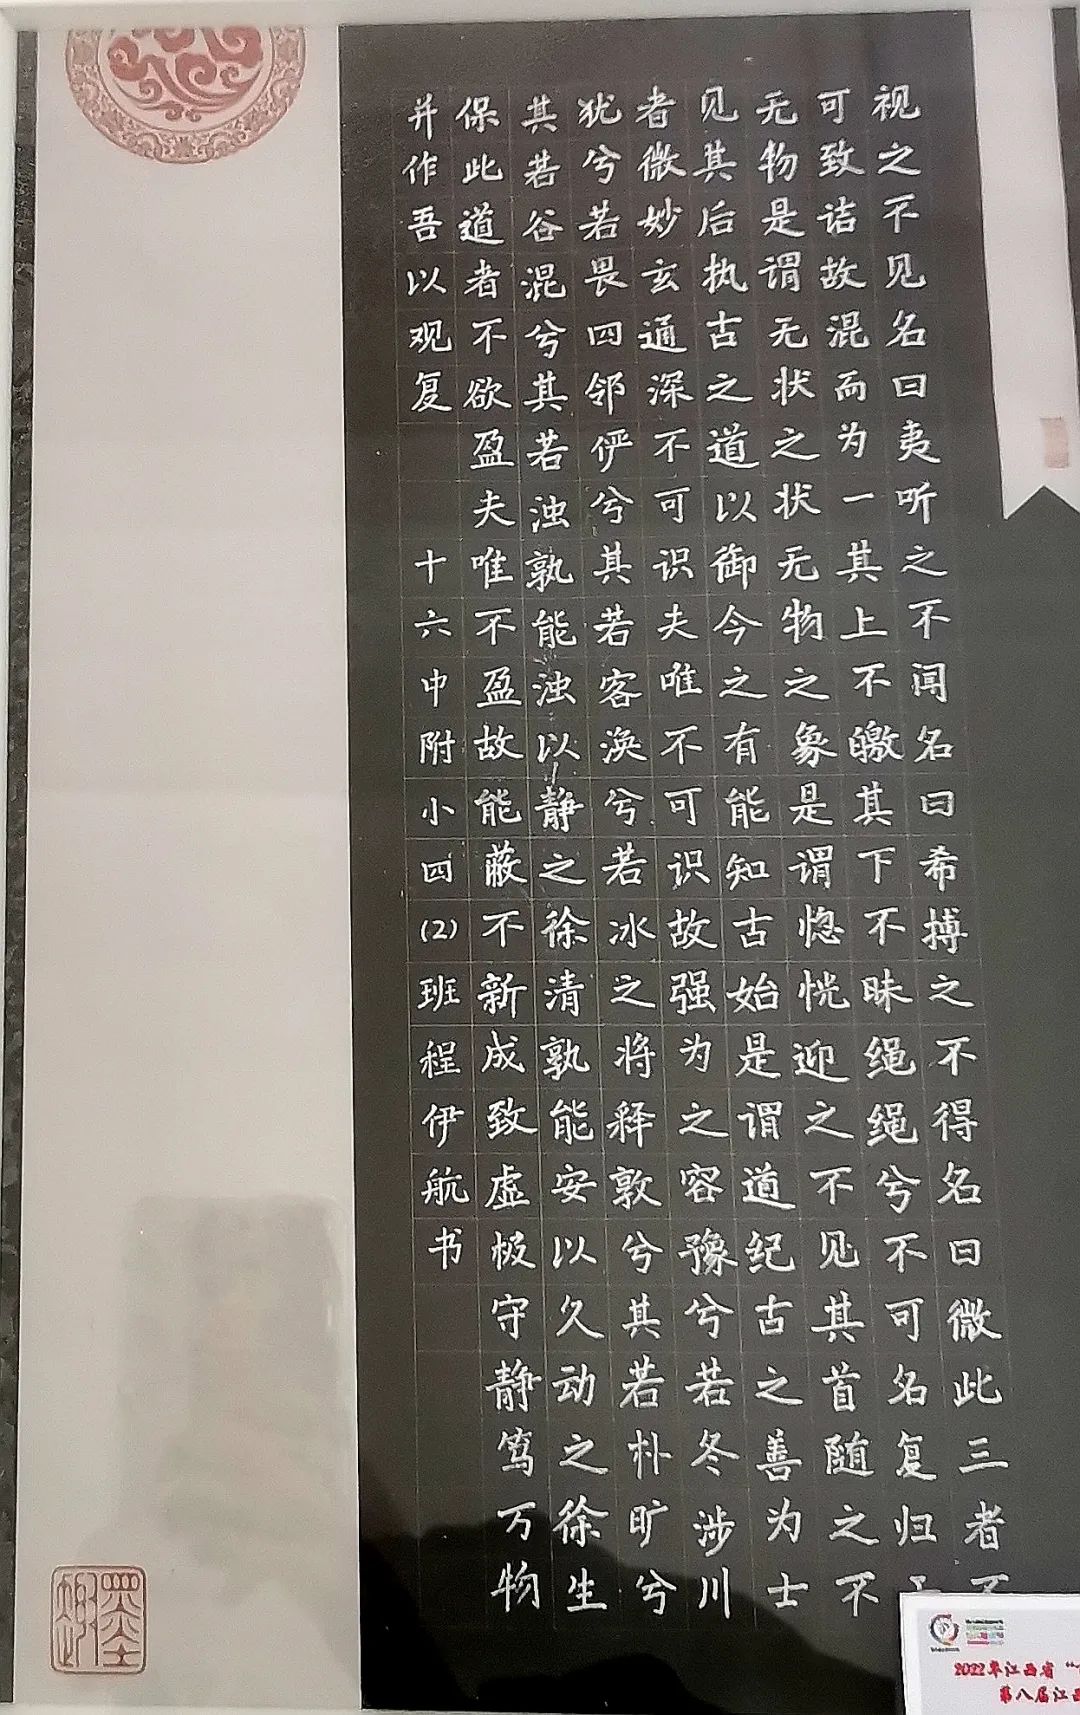 视之不见名曰夷听之不闻名曰希搏之不得名曰微此三者不
可致诘故混而为一其上不皦其下不昧绳绳兮不可名复归
无物是谓无状之状无物之象是谓惚恍迎之不见其首随之不
见其后执古之道以御今之有能知古始是谓道纪古之善为士
者微妙玄通深不可识夫唯不可识故强为之容豫兮若冬涉川
犹兮若畏四邻俨兮其若客涣兮若冰之将释敦兮其若朴旷兮
其若谷混兮其若浊孰能浊以静之徐清孰能安以久动之徐生
保此道者不欲盈夫唯不盈故能蔽不新成致虚极守静笃万物
并作吾以观复 十六中附小四(2)班程伊航书
2022年江西省“
第八届江西